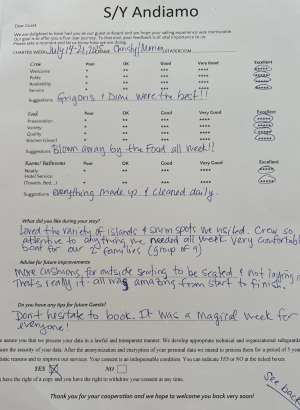 S/Y Andiamo
Dear Guest
We are delighted to have had you as our guest on board and we hope your sailing experience was memorable.
Our goal is to offer you a five-star journey. To that end, your feedback is of vital importance to us.
Please take a moment and let us know how we are doing.
CHARTER WEEK: July 14-21, 2025 Christy/Morrison
Crew Poor OK Good Very Good Excellent
Welcome * ** *** **** *****
Polite * ** *** **** *****
Availability * ** *** **** *****
Service * ** *** **** *****
Suggestions: Grigoris & Dimi were the best!!
Food Poor OK Good Very Good Excellent
Presentation * ** *** **** *****
Variety * ** *** **** *****
Quality * ** *** **** *****
Kitchen (clean) * ** *** **** *****
Suggestions: Blown away by the food all week!!
Rooms/ Bathrooms Poor OK Good Very Good Excellent
Neatly * ** *** **** *****
Hotel Service
(Towels, Bed...) * ** *** **** *****
Suggestions: everything made up & cleaned daily.
What did you like during your stay?
Loved the variety of islands & swim spots we visited. Crew so
attentive to anything we needed all week. Very comfortable
boat for our 2 families (group of 9)
Advise for future improvements
More cushions for outside seating to be seated & not laying
That's really it. all was amazing from start to finish.
Do you have any tips for future Guests?
Don't hesitate to book. It was a magical week for
everyone!
assure you that we process your data in a lawful and transparent manner. We develop appropriate technical and organizational safeguards
ure the security of your data. After the anonymization and encryption of your personal data we intend to process them for a period of 5 year
istic reasons and to improve our services. Your consent is an indispensable condition. You can indicate YES or NO at the ticked boxes
YES NO
have the right of a copy and you have the right to withdraw your consent at any time.
See back
Thank you for your cooperation and we hope to welcome you back very soon!